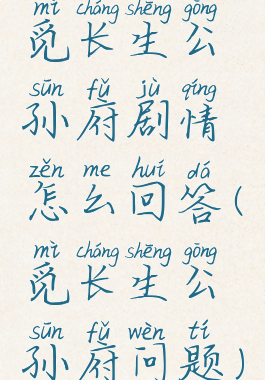 mì cháng shēng gōng
觅长生公
sūn fǔ jù qíng
孙府剧情
zěn me huí dá
怎么回答(
mì cháng shēng gōng
觅长生公
sūn fǔ wèn tí
孙府问题)